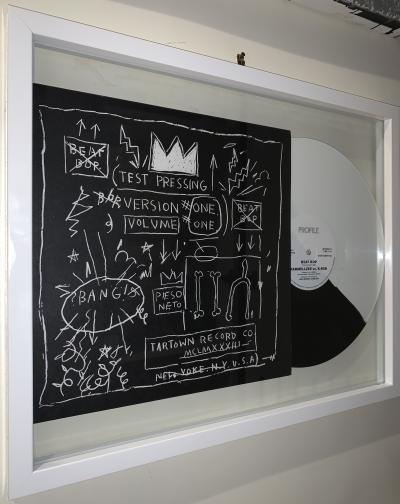 BEAT
BOP
TEST PRESSING
VERSION #ONE
VOLUME ONE
BEAT
BOP
BANG!
PIESO
NETO
TARTOWN RECORD CO.
MCLMXXXIII
NEW YORK. N.Y. U.S.A
PROFILE
BEAT BOP
RAMMELLZEE vs. K-ROB